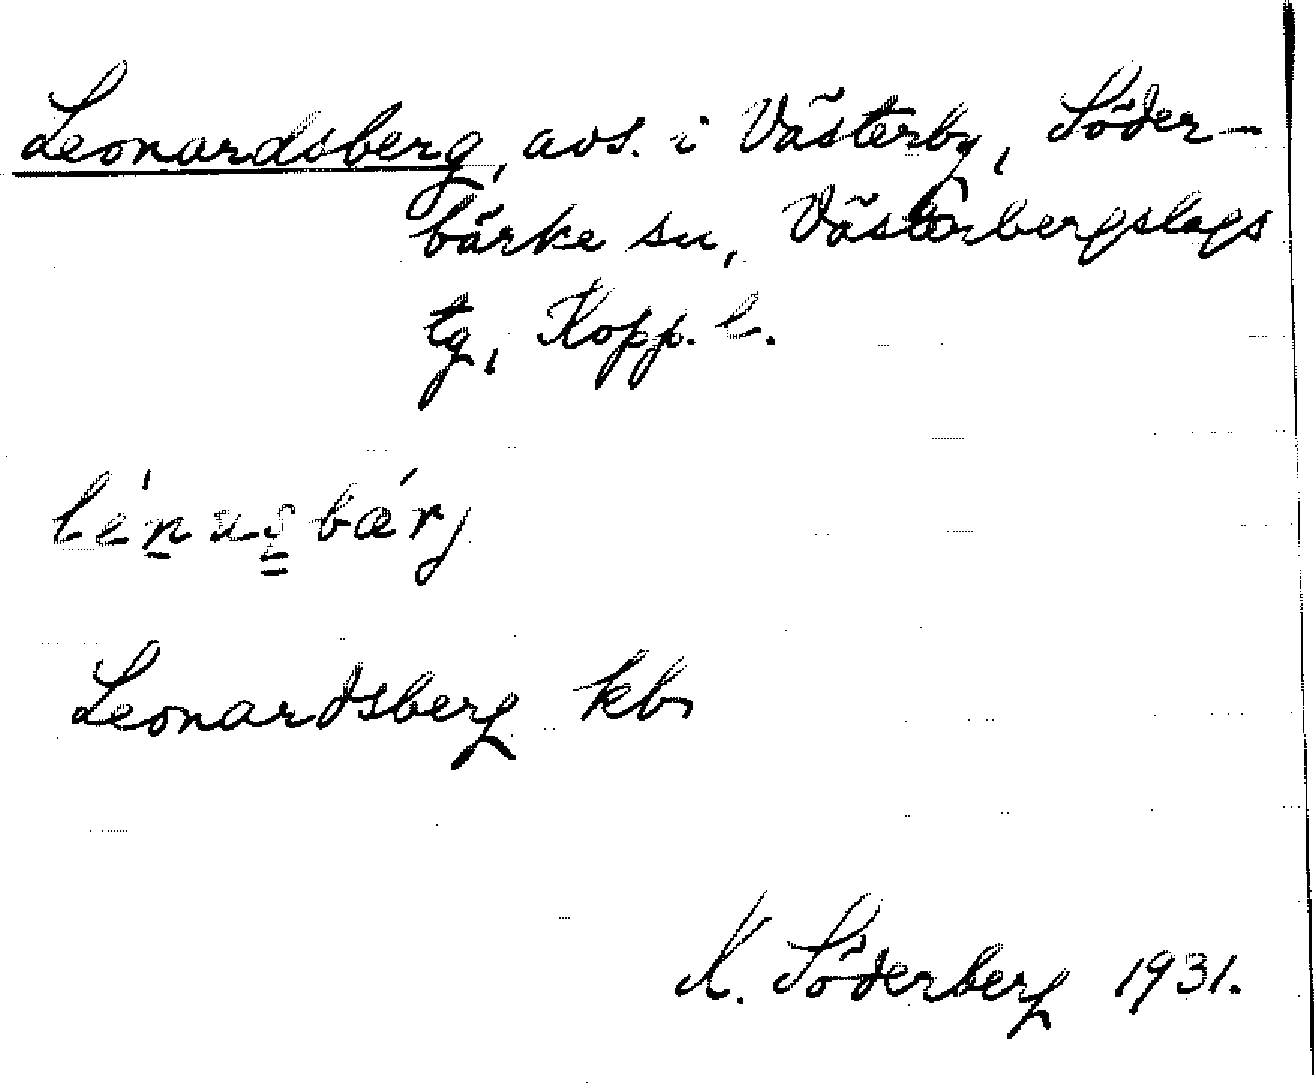 Leonardsberg, avs. i Västerby, Söder-
bärke sn, Västerbergslags
tg, Kopp. l.
lénusbærj
Leonardsberg kb
K. Söderberg 1931.